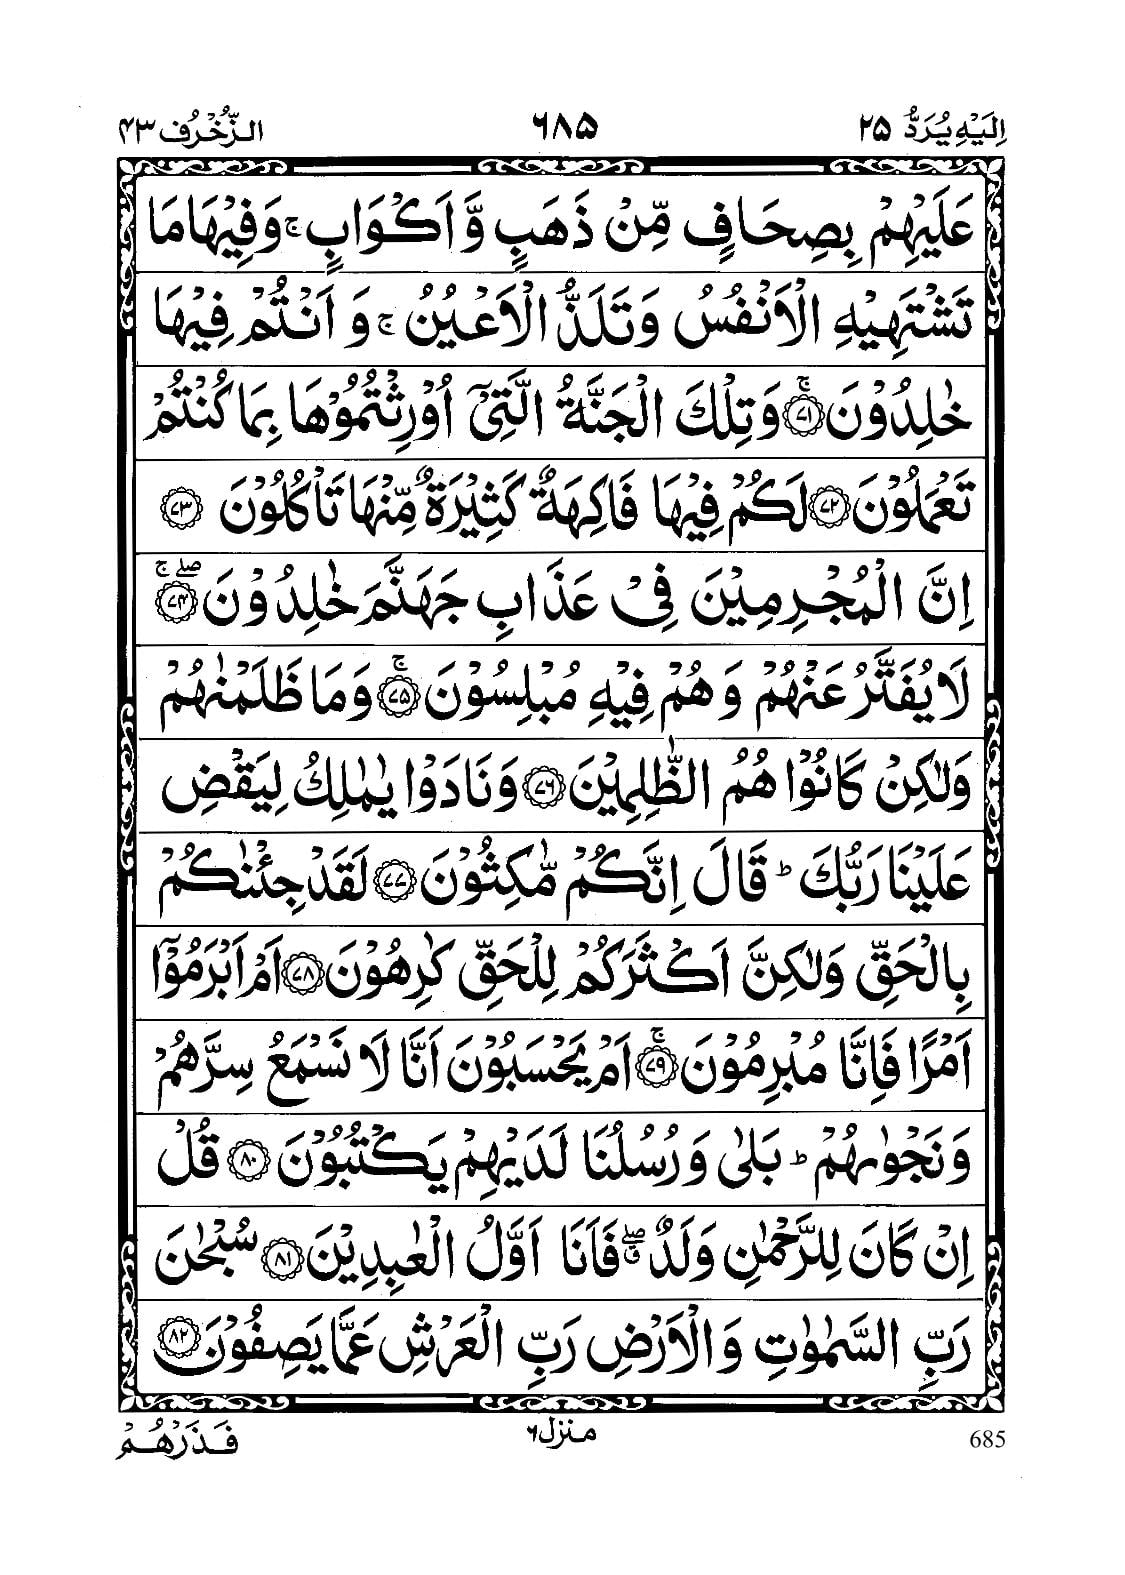 اِلَيْهِ يُرَدُّ ۲۵
٦٨۵
الزُّخْرُف ۴۳
عَلَيْهِمْ بِصِحَافٍ مِّنْ ذَهَبٍ وَّ اَكْوَابٍ ۚ وَفِيْهَا مَا
تَشْتَهِيْهِ الْاَنْفُسُ وَ تَلَذُّ الْاَعْيُنُ ۚ وَ اَنْتُمْ فِيْهَا
خٰلِدُوْنَ ۚ‏﴿۷۱﴾ وَ تِلْكَ الْجَنَّةُ الَّتِيْۤ اُوْرِثْتُمُوْهَا بِمَا كُنْتُمْ
تَعْمَلُوْنَ ﴿۷۲﴾ لَكُمْ فِيْهَا فَاكِهَةٌ كَثِيْرَةٌ مِّنْهَا تَاْكُلُوْنَ ﴿۷۳﴾
اِنَّ الْمُجْرِمِيْنَ فِيْ عَذَابِ جَهَنَّمَ خٰلِدُوْنَ ۖۚ﴿۷۴﴾
لَا يُفَتَّرُ عَنْهُمْ وَ هُمْ فِيْهِ مُبْلِسُوْنَ ۚ﴿۷۵﴾ وَ مَا ظَلَمْنٰهُمْ
وَلٰكِنْ كَانُوْا هُمُ الظّٰلِمِيْنَ ﴿۷٦﴾ وَ نَادَوْا يٰمٰلِكُ لِيَقْضِ
عَلَيْنَا رَبُّكَ ؕ قَالَ اِنَّكُمْ مّٰكِثُوْنَ ﴿۷۷﴾ لَقَدْ جِئْنٰكُمْ
بِالْحَقِّ وَلٰكِنَّ اَكْثَرَكُمْ لِلْحَقِّ كٰرِهُوْنَ ﴿۷۸﴾ اَمْ اَبْرَمُوْۤا
اَمْرًا فَاِنَّا مُبْرِمُوْنَ ۚ﴿۷۹﴾ اَمْ يَحْسَبُوْنَ اَنَّا لَا نَسْمَعُ سِرَّهُمْ
وَ نَجْوٰىهُمْ ؕ بَلٰى وَ رُسُلُنَا لَدَيْهِمْ يَكْتُبُوْنَ ﴿۸۰﴾ قُلْ
اِنْ كَانَ لِلرَّحْمٰنِ وَلَدٌ ۖۗ فَاَنَا اَوَّلُ الْعٰبِدِيْنَ ﴿۸۱﴾ سُبْحٰنَ
رَبِّ السَّمٰوٰتِ وَ الْاَرْضِ رَبِّ الْعَرْشِ عَمَّا يَصِفُوْنَ ﴿۸۲﴾
685
منزل ٦
فَذَرْهُمْ